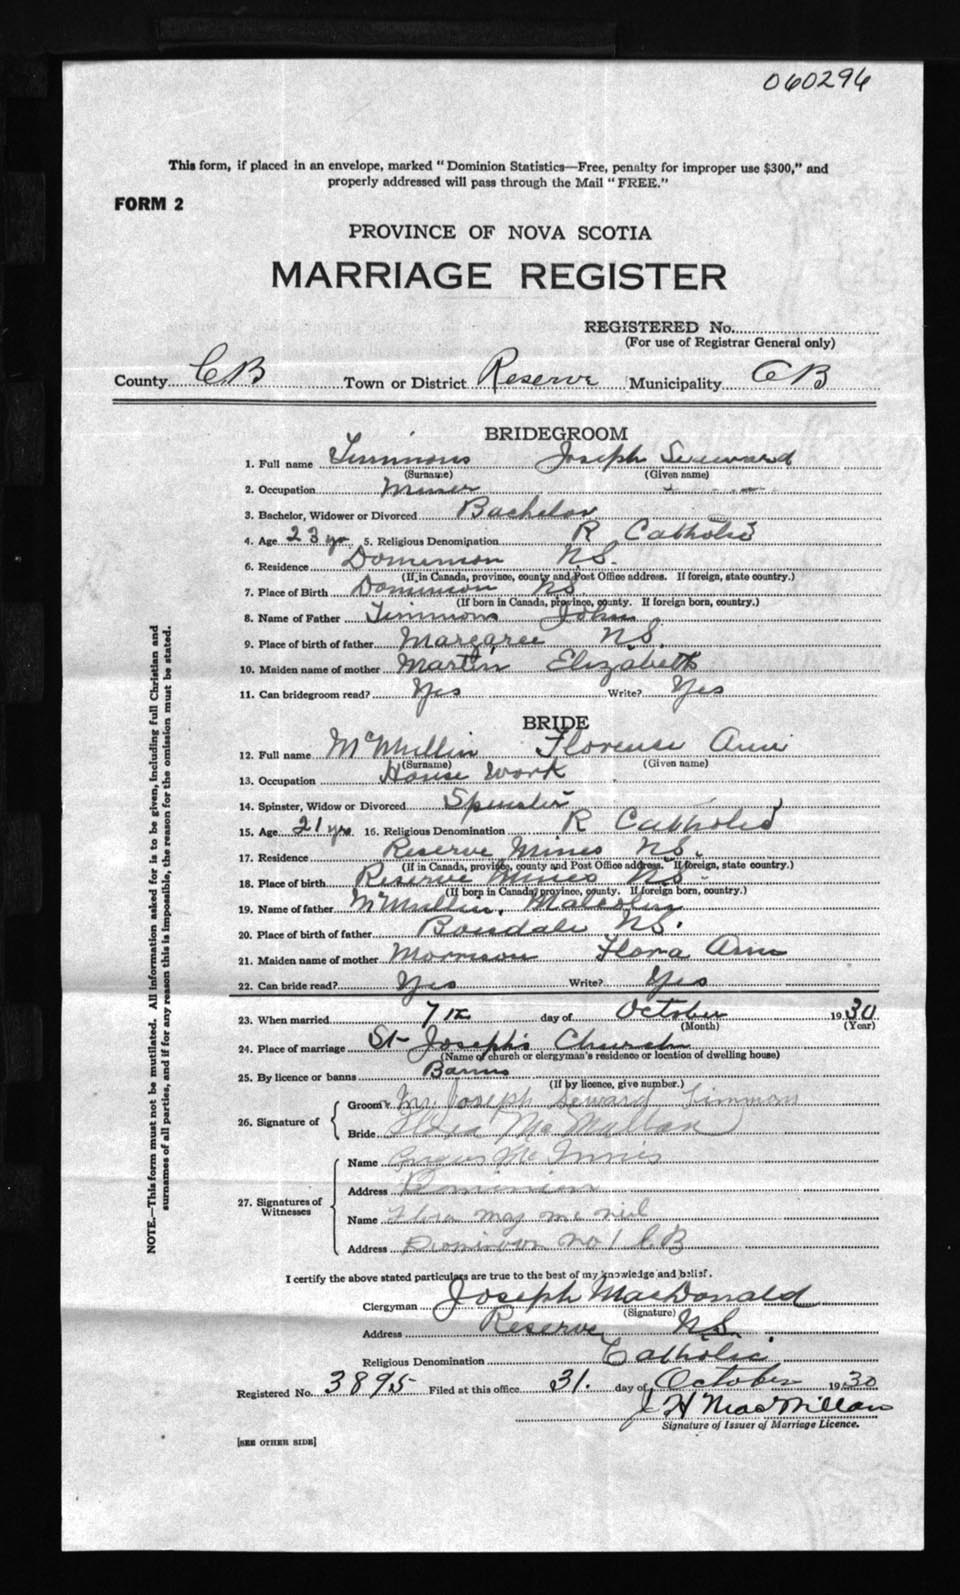 060296
This form, if placed in an envelope, marked "Dominion Statistics—Free, penalty for improper use $300," and
properly addressed will pass through the Mail "FREE."
FORM 2
PROVINCE OF NOVA SCOTIA
MARRIAGE REGISTER
REGISTERED No.
(For use of Registrar General only)
County CB Town or District Reserve Municipality CB
BRIDEGROOM
1. Full name Timmons Joseph Seward
(Surname) (Given name)
2. Occupation Miner
3. Bachelor, Widower or Divorced Bachelor
4. Age 23 yr 5. Religious Denomination R Catholic
6. Residence Dominion NS.
(If in Canada, province, county and Post Office address. If foreign, state country.)
7. Place of Birth Dominion NS
(If born in Canada, province, county. If foreign born, country.)
8. Name of Father Timmons John
9. Place of birth of father Margaree NS.
10. Maiden name of mother Martin Elizabeth
11. Can bridegroom read? Yes Write? Yes
BRIDE
12. Full name McMullin Florence Ann
(Surname) (Given name)
13. Occupation House Work
14. Spinster, Widow or Divorced Spinster
15. Age 21 yrs 16. Religious Denomination R Catholic
17. Residence Reserve Mines NS.
(If in Canada, province, county and Post Office address. If foreign, state country.)
18. Place of birth Reserve Mines NS.
(If born in Canada, province, county. If foreign born, country.)
19. Name of father McMullin, Malcolm
20. Place of birth of father Boisdale NS.
21. Maiden name of mother Morrison Flora Ann
22. Can bride read? Yes Write? Yes
23. When married 7th day of October 1930
(Month) (Year)
24. Place of marriage St Joseph's Church
(Name of church or clergyman's residence or location of dwelling house)
25. By licence or banns Banns
(If by licence, give number.)
26. Signature of
Groom Mr. Joseph Seward Timmons
Bride McMullan
27. Signatures of Witnesses
Name Angus McInnis
Address Dominion
Name Flora May McNeil
Address Dominion No 1 C.B
I certify the above stated particulars are true to the best of my knowledge and belief.
Clergyman Joseph MacDonald
(Signature)
Address Reserve NS.
Religious Denomination Catholic
Registered No. 3895 Filed at this office 31. day of October 1930
J H MacMillan
Signature of Issuer of Marriage Licence.
[SEE OTHER SIDE]
NOTE.—This form must not be mutilated. All information asked for is to be given, including full Christian and
surnames of all parties, and if for any reason this is impossible, the reason for the omission must be stated.